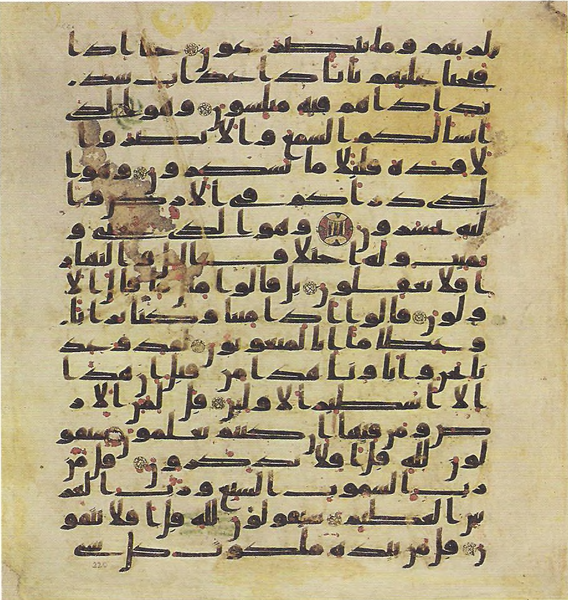 لربهم وما يتضرعون حتى اذا
فتحنا عليهم بابا ذا عذاب شد
يد اذا هم فيه مبلسون وهو الذي
انشا لكم السمع والابصر وا
لافده قليلا ما تشكرون وهو ا
لذي ذراكم في الارض وا
ليه تحشرون وهو الذي يحي و
يميت وله اختلاف اليل والنهار
افلا تعقلون بل قالوا مثل ما قال الا
ولون قالوا اذا متنا وكنا ترابا
وعظاما انا لمبعوثون لقد وعد
نا نحن واباونا هذا من قبل ان هذا
الا اسطير الاولين قل لمن الار
ض ومن فيها ان كنتم تعلمون سيقو
لون لله قل افلا تذكرون قل من
رب السموت السبع ورب العر
ش العظيم سيقولون لله قل افلا تتقو
ن قل من بيده ملكوت كل شي